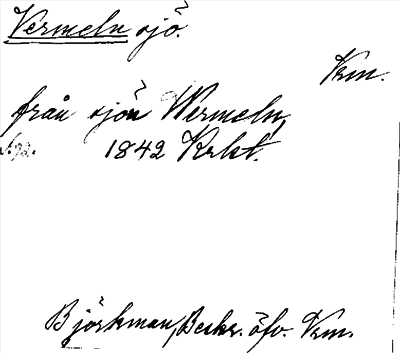 Vermeln sjö.
Vrm.
från sjön Wermeln,
s. 92. 1842 Krkt.
Björkman, Beskr. öfv. Vrm.